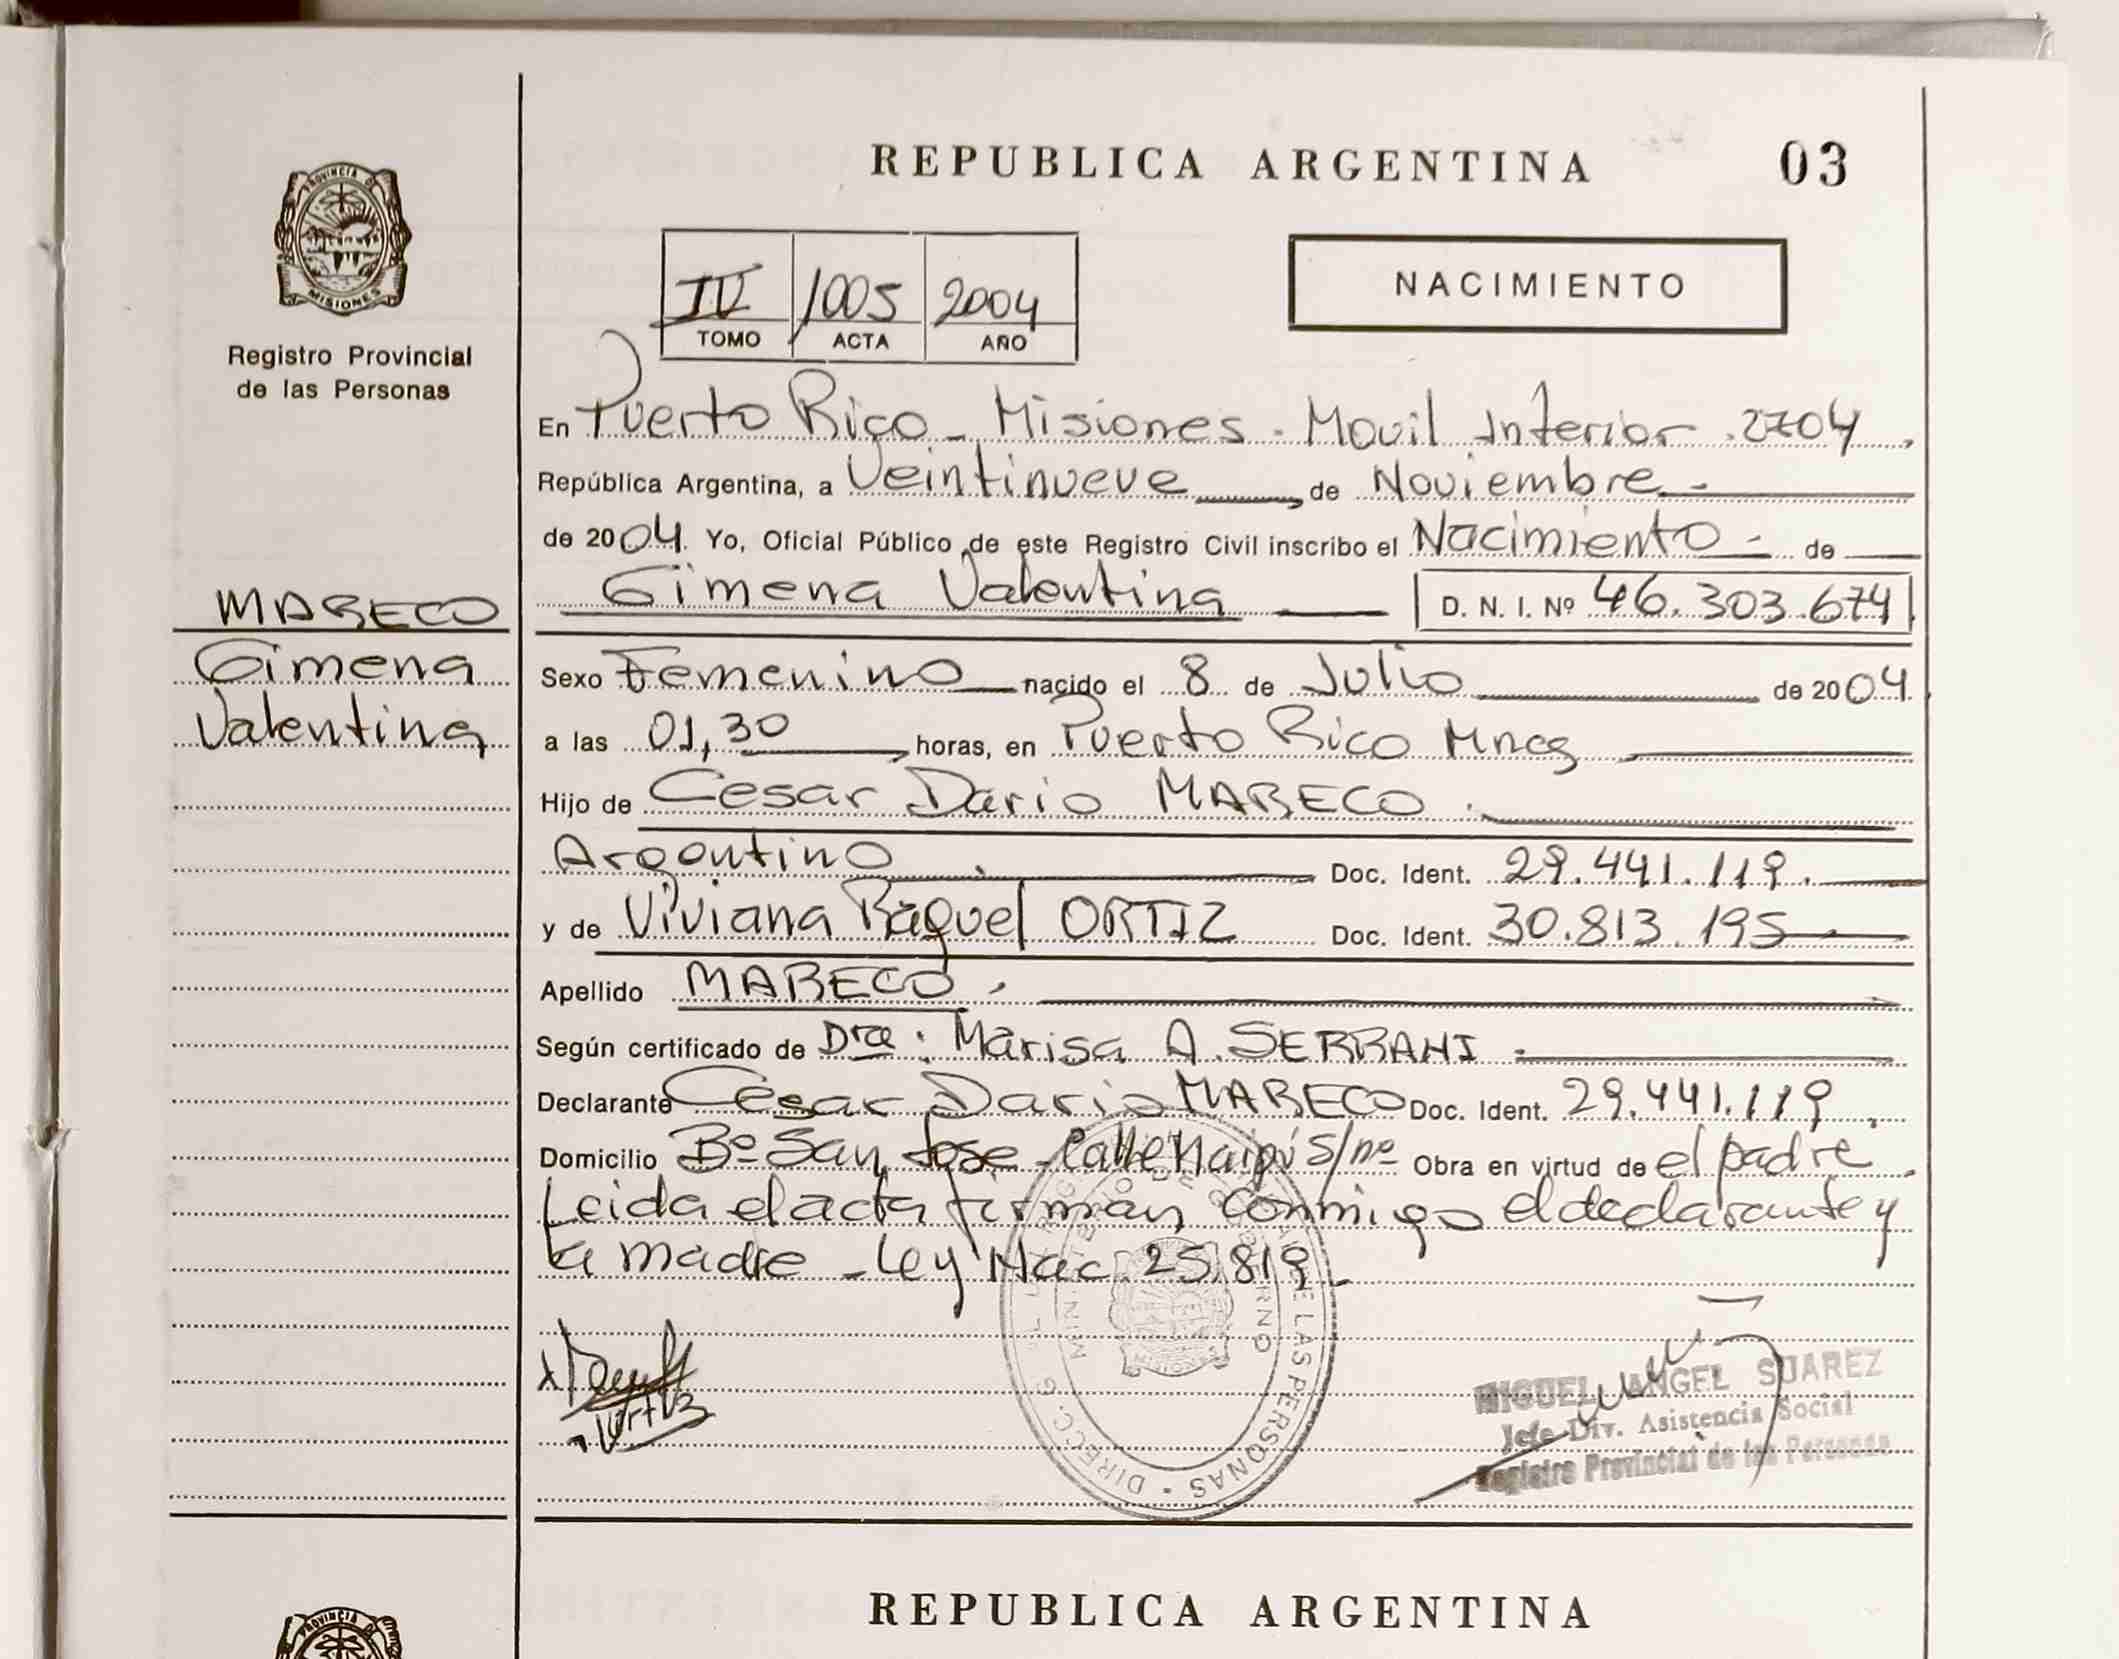 REPUBLICA ARGENTINA 03
PROVINCIA DE
MISIONES
Registro Provincial
de las Personas
IV 1005 2004
TOMO ACTA AÑO
NACIMIENTO
En Puerto Rico - Misiones - Movil Interior 2704,
República Argentina, a Veintinueve de Noviembre -
de 2004. Yo, Oficial Público de este Registro Civil inscribo el Nacimiento - de
Gimena Valentina D. N. I. Nº 46.303.674
MARECO
Gimena
Valentina
Sexo Femenino nacido el 8 de Julio de 2004
a las 01,30 horas, en Puerto Rico Mnes
Hijo de Cesar Dario MARECO.
Argentino Doc. Ident. 29.441.119.
y de Viviana Raquel ORTIZ Doc. Ident. 30.813.195
Apellido MARECO.
Según certificado de Dra: Marisa A. SERRANI.
Declarante Cesar Dario MARECO Doc. Ident. 29.441.119,
Domicilio Bº San Jose - Calle Maipú s/nº Obra en virtud de el padre.
Leida el acta firman conmigo el declarante y
la madre - Ley Nac. 25.819.
DIRECC. G. DE LAS PERSONAS
MINISTERIO DE GOBIERNO
MISIONES
MIGUEL ANGEL SUAREZ
Jefe Div. Asistencia Social
Registro Provincial de las Personas
REPUBLICA ARGENTINA
PROVINCIA DE